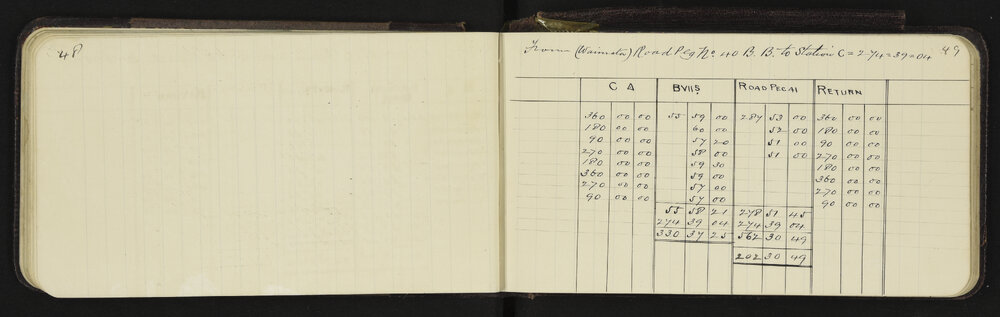 48
From (Waimata) Road Peg No 40 B. B. to Station C = 274 = 39 = 04 49
C Δ BVIIS ROAD PEG 41 RETURN
360 00 00 55 59 00 287 53 00 360 00 00
180 00 00 60 00 52 00 180 00 00
90 00 00 57 20 51 00 90 00 00
270 00 00 58 00 51 00 270 00 00
180 00 00 59 30 180 00 00
360 00 00 59 00 360 00 00
270 00 00 57 00 270 00 00
90 00 00 57 00 90 00 00
55 58 21 278 51 45
274 39 04 274 39 04
330 37 25 562 30 49
202 30 49